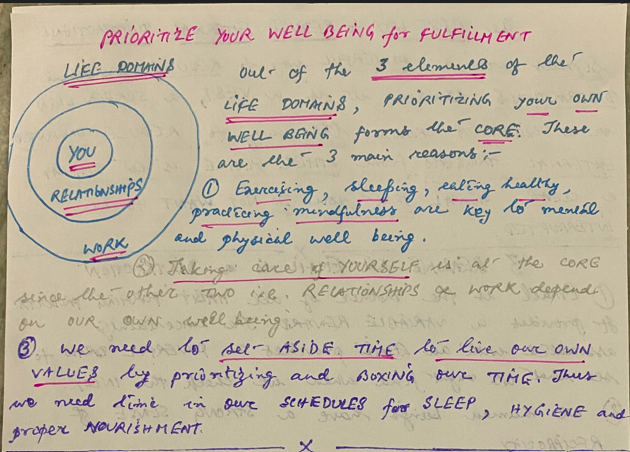 PRIORITIZE YOUR WELL BEING for FULFILLMENT
LIFE DOMAINS
YOU
RELATIONSHIPS
WORK
Out of the 3 elements of the
LIFE DOMAINS, PRIORITIZING your OWN
WELL BEING forms the CORE. These
are the 3 main reasons:-
① Exercising, sleeping, eating healthy,
practicing mindfulness are key to mental
and physical well being.
② Taking care of YOURSELF is at the CORE
since the other TWO i.e. RELATIONSHIPS & WORK depend
on OUR OWN well being.
③ we need to set ASIDE TIME to live our OWN
VALUES by prioritizing and BOXING our TIME. Thus
we need time in our SCHEDULES for SLEEP, HYGIENE and
proper NOURISHMENT.
X